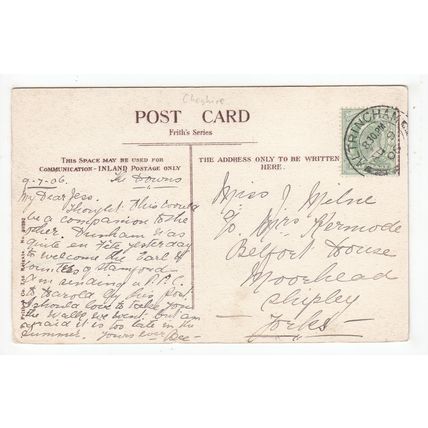 Cheshire
POST CARD
Frith's Series
THIS SPACE MAY BE USED FOR
COMMUNICATION - INLAND POSTAGE ONLY
THE ADDRESS ONLY TO BE WRITTEN
HERE.
ALTRINCHAM
8.10 PM
9-7-06. The Downs
My Dear Jess.
Thought this would
be a companion to the
other. Dunham was
quite en fete yesterday
to welcome the Earl &
Countess of Stamford
Am sending a P.P.C.
to Harold by this post.
I should love to take you
the walk we went. but am
afraid it is too late in the
Summer. Yours ever Dec-
Miss J Milne
C/o Mrs Kermode
Belfort House
Moorhead
Shipley
Yorks